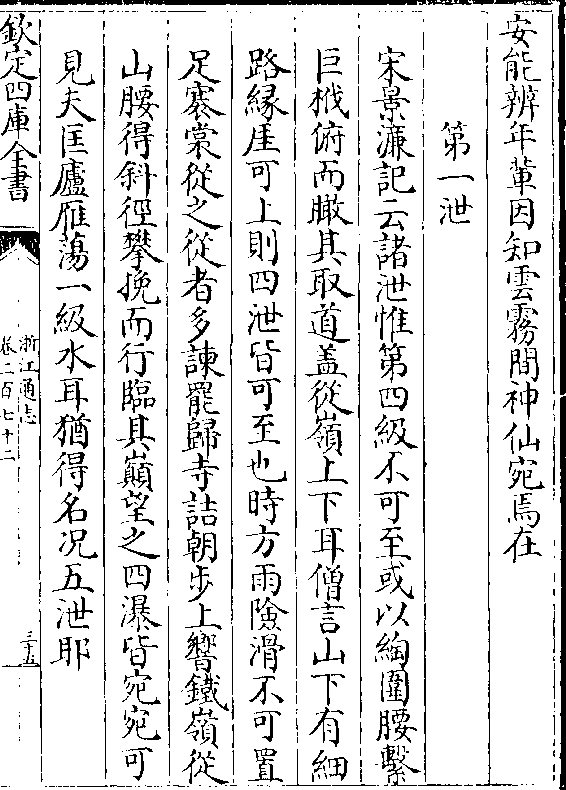 安能辨年輩因知雲霧間神仙宛焉在
第一泄
宋景濂記云諸泄惟第四級不可至或以綯圍腰繫
巨栰俯而瞰其取道盖從嶺上下耳僧言山下有細
路緣厓可上則四泄皆可至也時方雨險滑不可置
足褰裳從之從者多諫罷歸寺詰朝步上響鐵嶺從
山腰得斜徑攀挽而行臨其巔望之四瀑皆宛宛可
見夫匡廬雁蕩一級水耳猶得名况五泄耶
欽定四庫全書
浙江通志
卷二百七十二
三十五